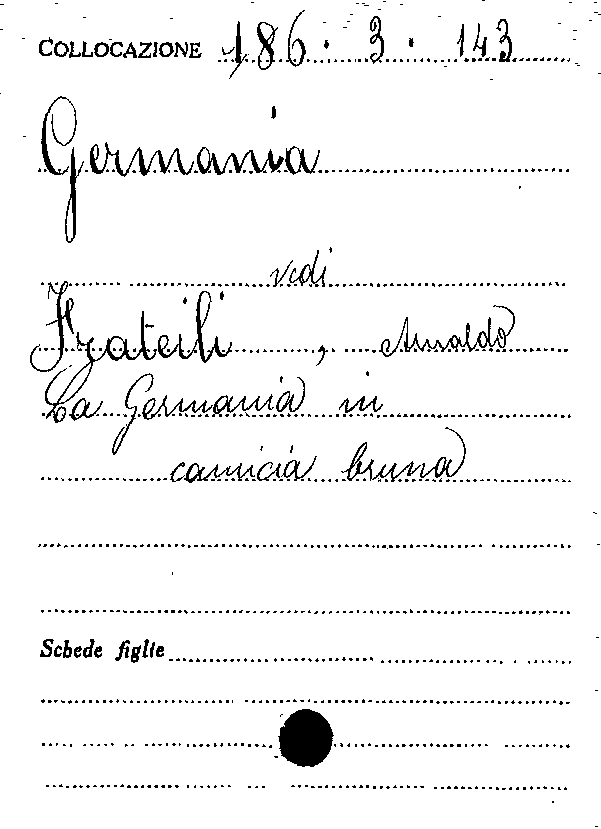 COLLOCAZIONE 186 · 3 · 143
Germania
vedi
Frateili, Arnaldo
La Germania in
camicia bruna
Schede figlie